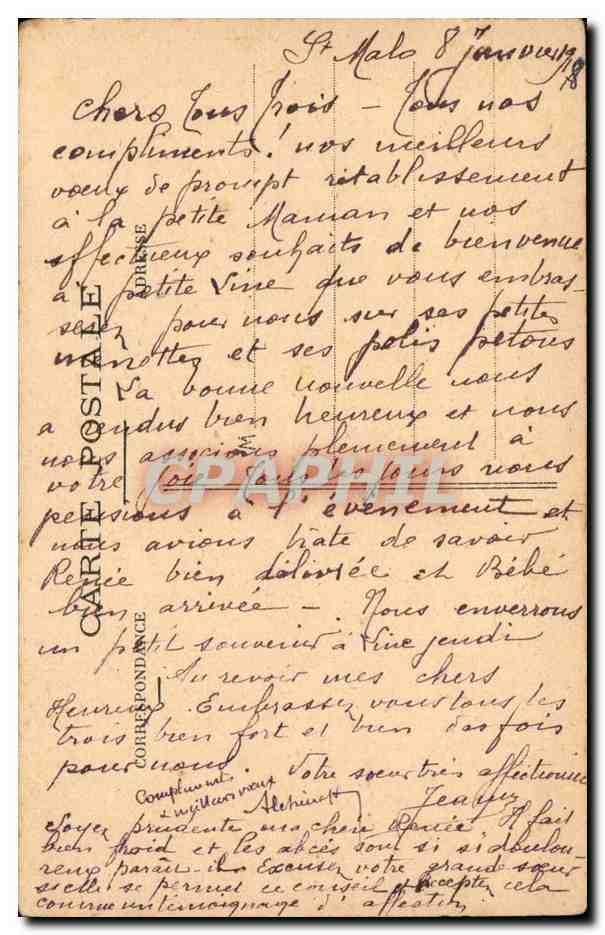 St Malo 8 Janvier 18
Chers Tous Trois - Tous nos
compliments! nos meilleurs
voeux de prompt rétablissement
à la petite Maman et nos
affectueux souhaits de bienvenue
à petite Line que vous embras-
serez pour nous sur ses petites
menottes et ses polis petons
La bonne nouvelle nous
a rendus bien heureux et nous
nous associons pleinement à
votre joie Tous les jours nous
pensions à l'évènement et
nous avions hâte de savoir
Renée bien délivrée et Bébé
bien arrivée -. Nous enverrons
un petit souvenir à Line jeudi
Au revoir mes chers
Heureux. Embrassez vous tous les
trois bien fort et bien des fois
pour nous. Votre soeur très affectionnée
Compliments
& meilleurs voeux
Soyez prudente ma chère Renée Il fait
bien froid et les abcès sont si si doulou-
reux paraît-il. Excusez votre grande soeur
si elle se permet ce conseil et acceptez cela
comme un témoignage d'affection
CARTE POSTALE
ADRESSE
CORRESPONDANCE
M
CPAPHIL